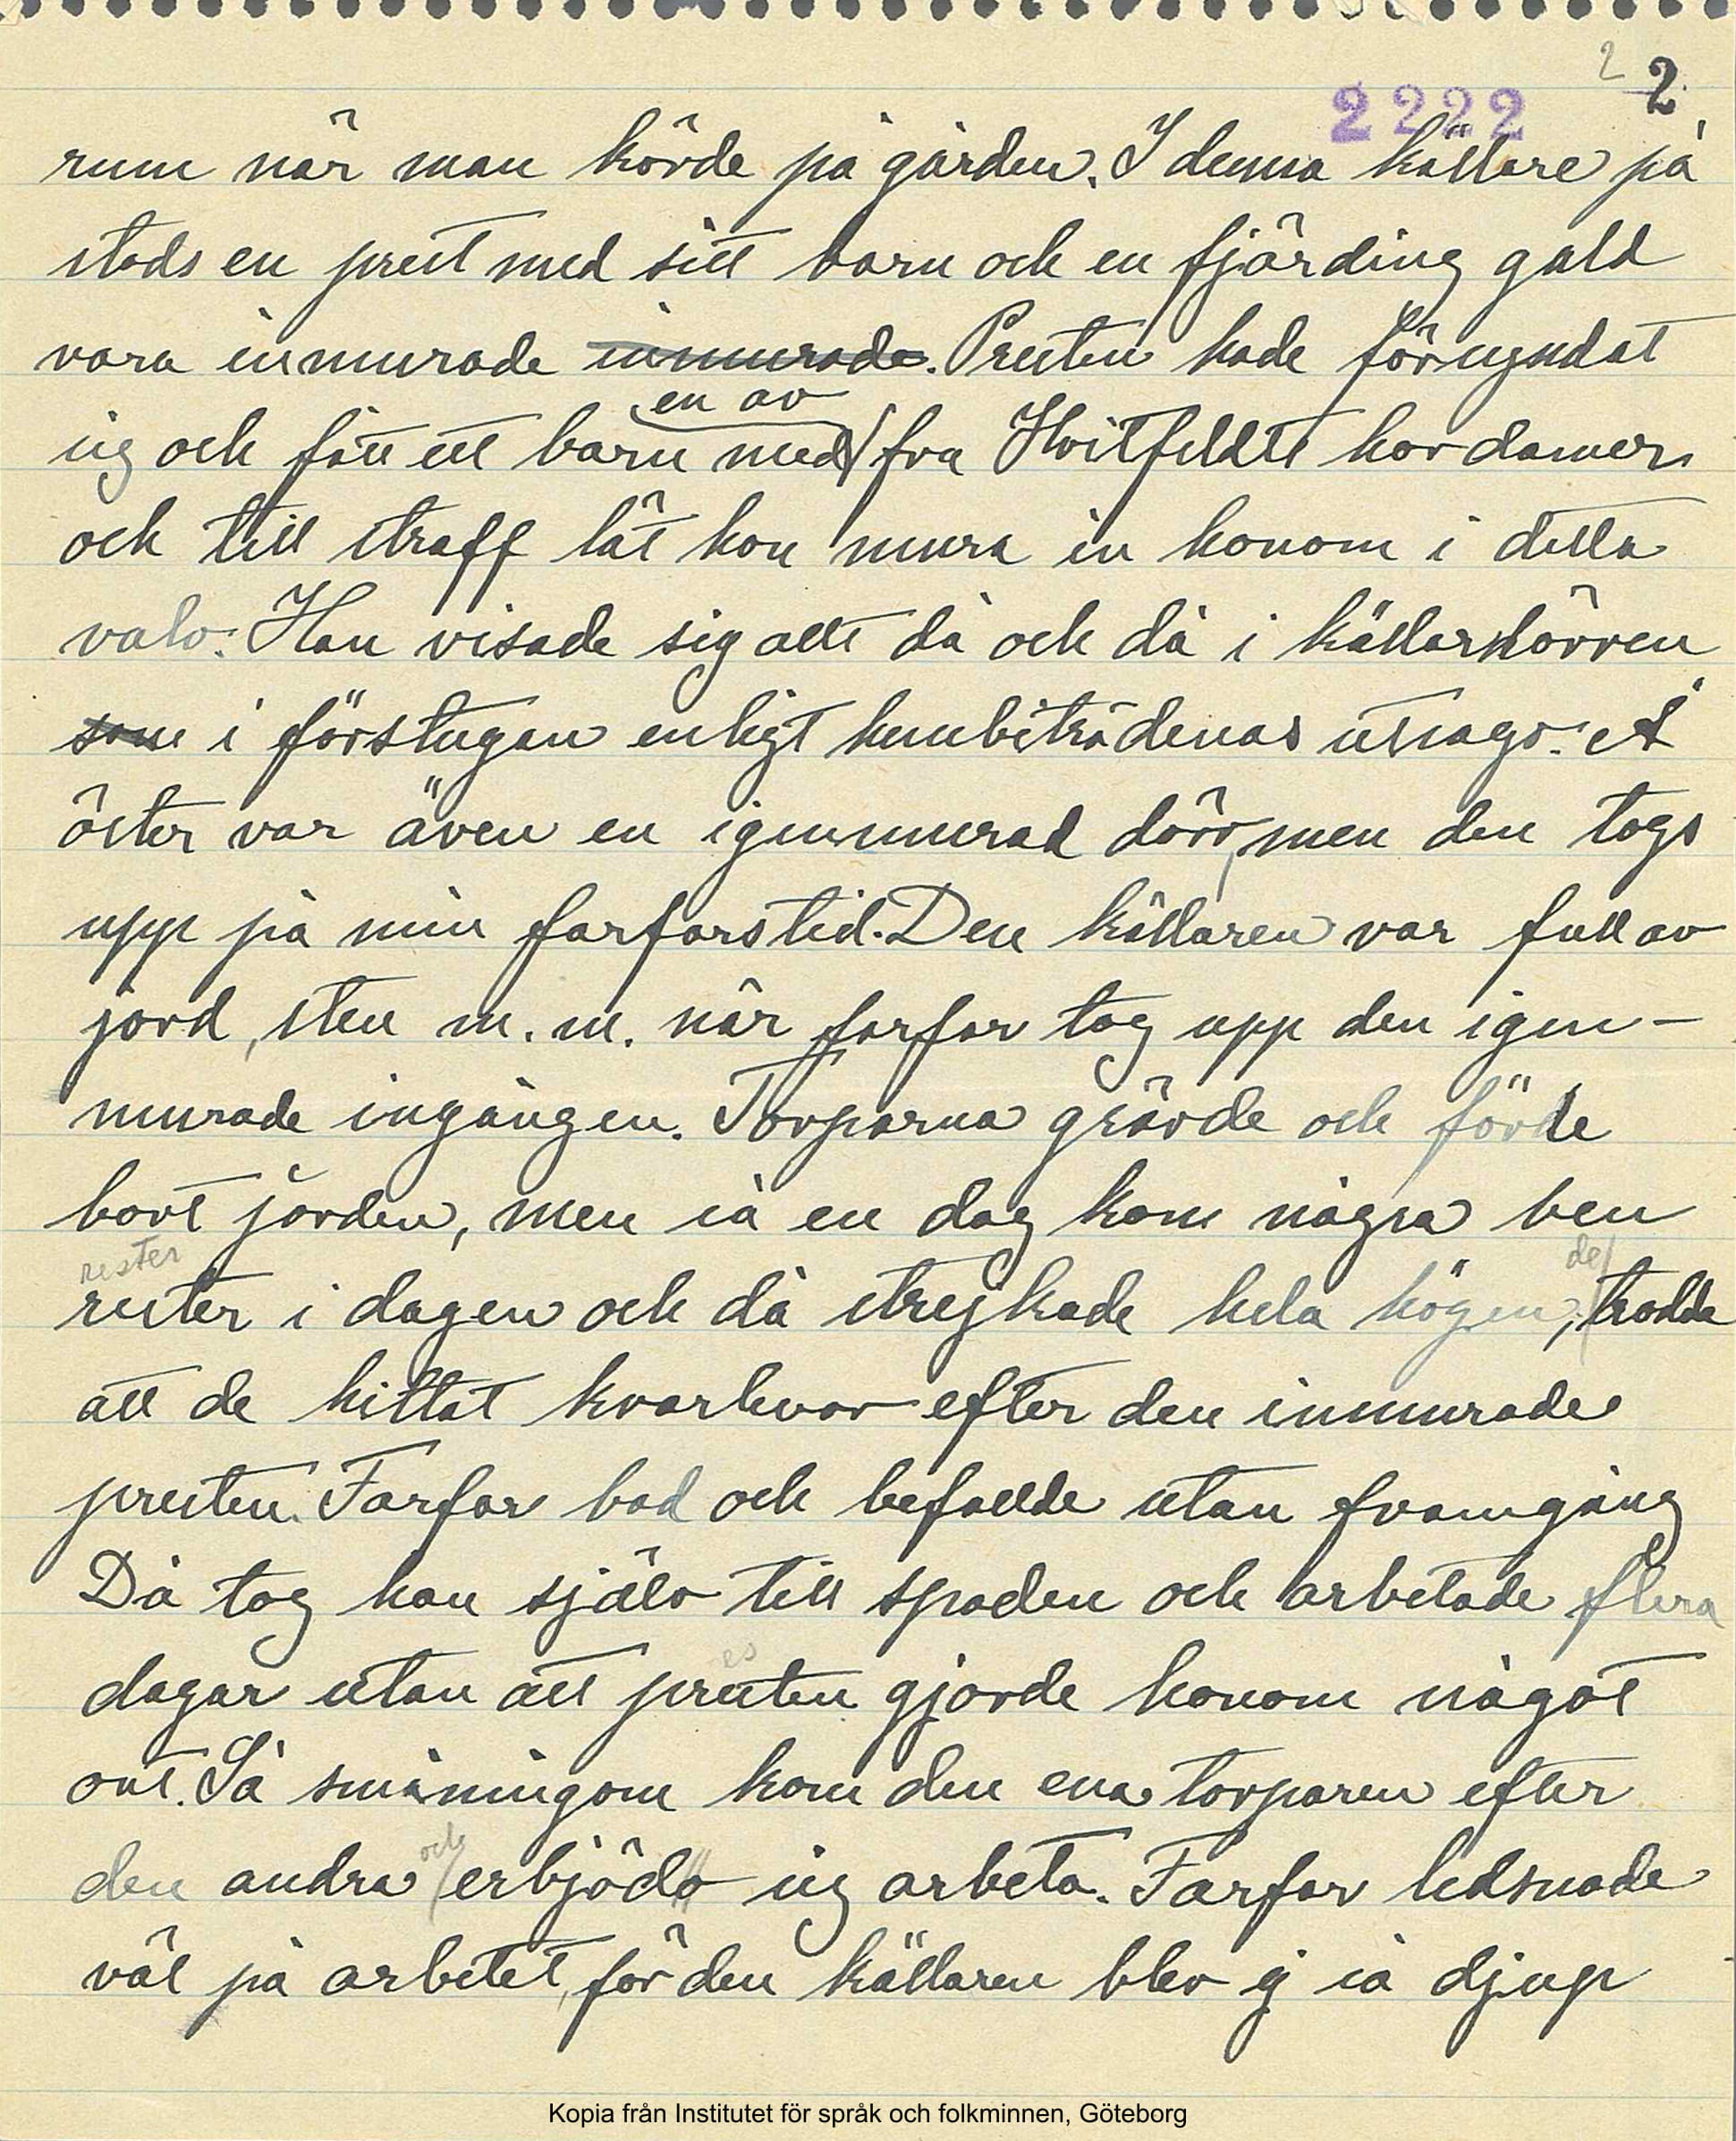 2 2
2222
rum när man körde på gården. I denna källare på
stods en prest med sitt barn och en fjärding guld
vara inmurade inmurade. Presten hade försyndat
en av
sig och fått ett barn med fru Hvitfeldts hovdamer
och till straff lät hon mura in honom i detta
valv. Han visade sig allt då och då i källardörren
som i förstugan enligt hembiträdenas utsago. Å
öster var även en igenmurad dörr, men den togs
upp på min farfars tid. Den källaren var full av
jord, sten m. m. när farfar tog upp den igen-
murade ingången. Torparna grävde och förde
bort jorden, men så en dag kom några ben
rester de
rester i dagen och då strejkade hela högen, trodde
att de hittat kvarlevor efter den inmurade
presten. Farfar bad och befallde utan framgång
Då tog han själv till spaden och arbetade flera
es
dagar utan att presten gjorde honom något
ont. Så småningom kom den ena torparen efter
och
den andra erbjöda sig arbeta. Farfar ledsnade
väl på arbetet, för den källaren blev ej så djup
Kopia från Institutet för språk och folkminnen, Göteborg